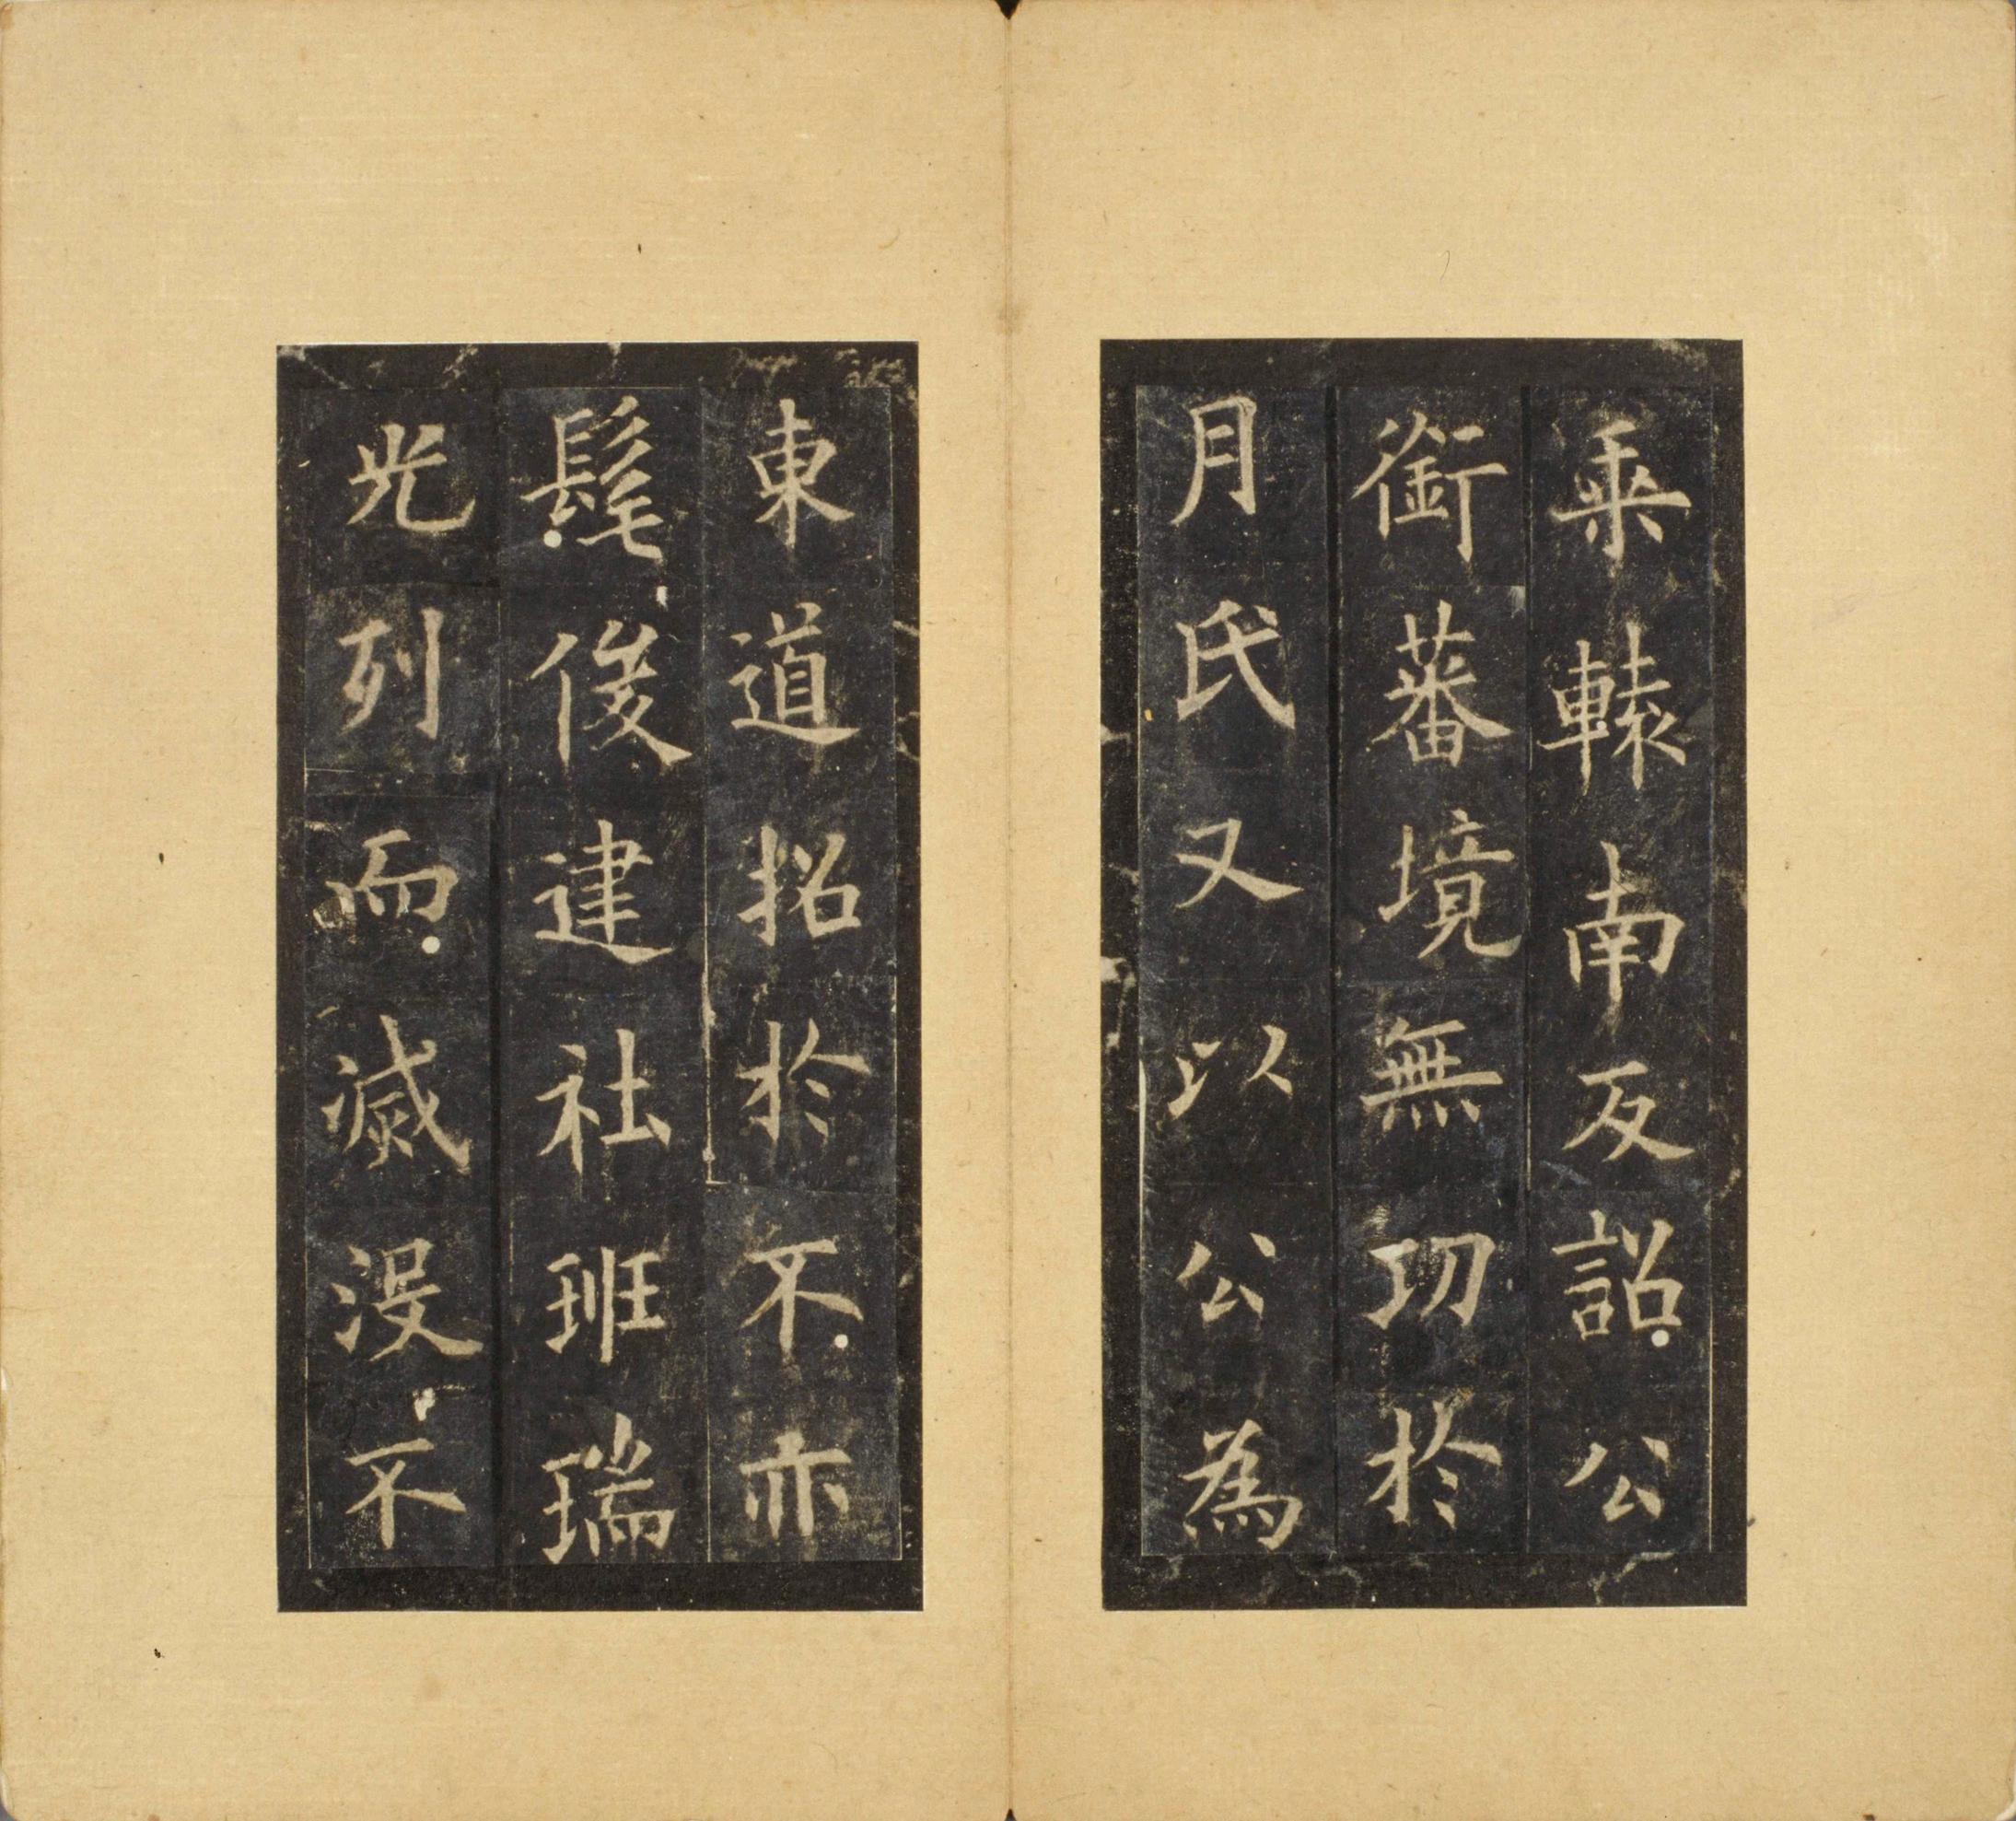 乗轅南反詔公
銜蕃境無㓛於
月氏又以公為
東道招於不亦
髦俊建社班瑞
光列而滅没不